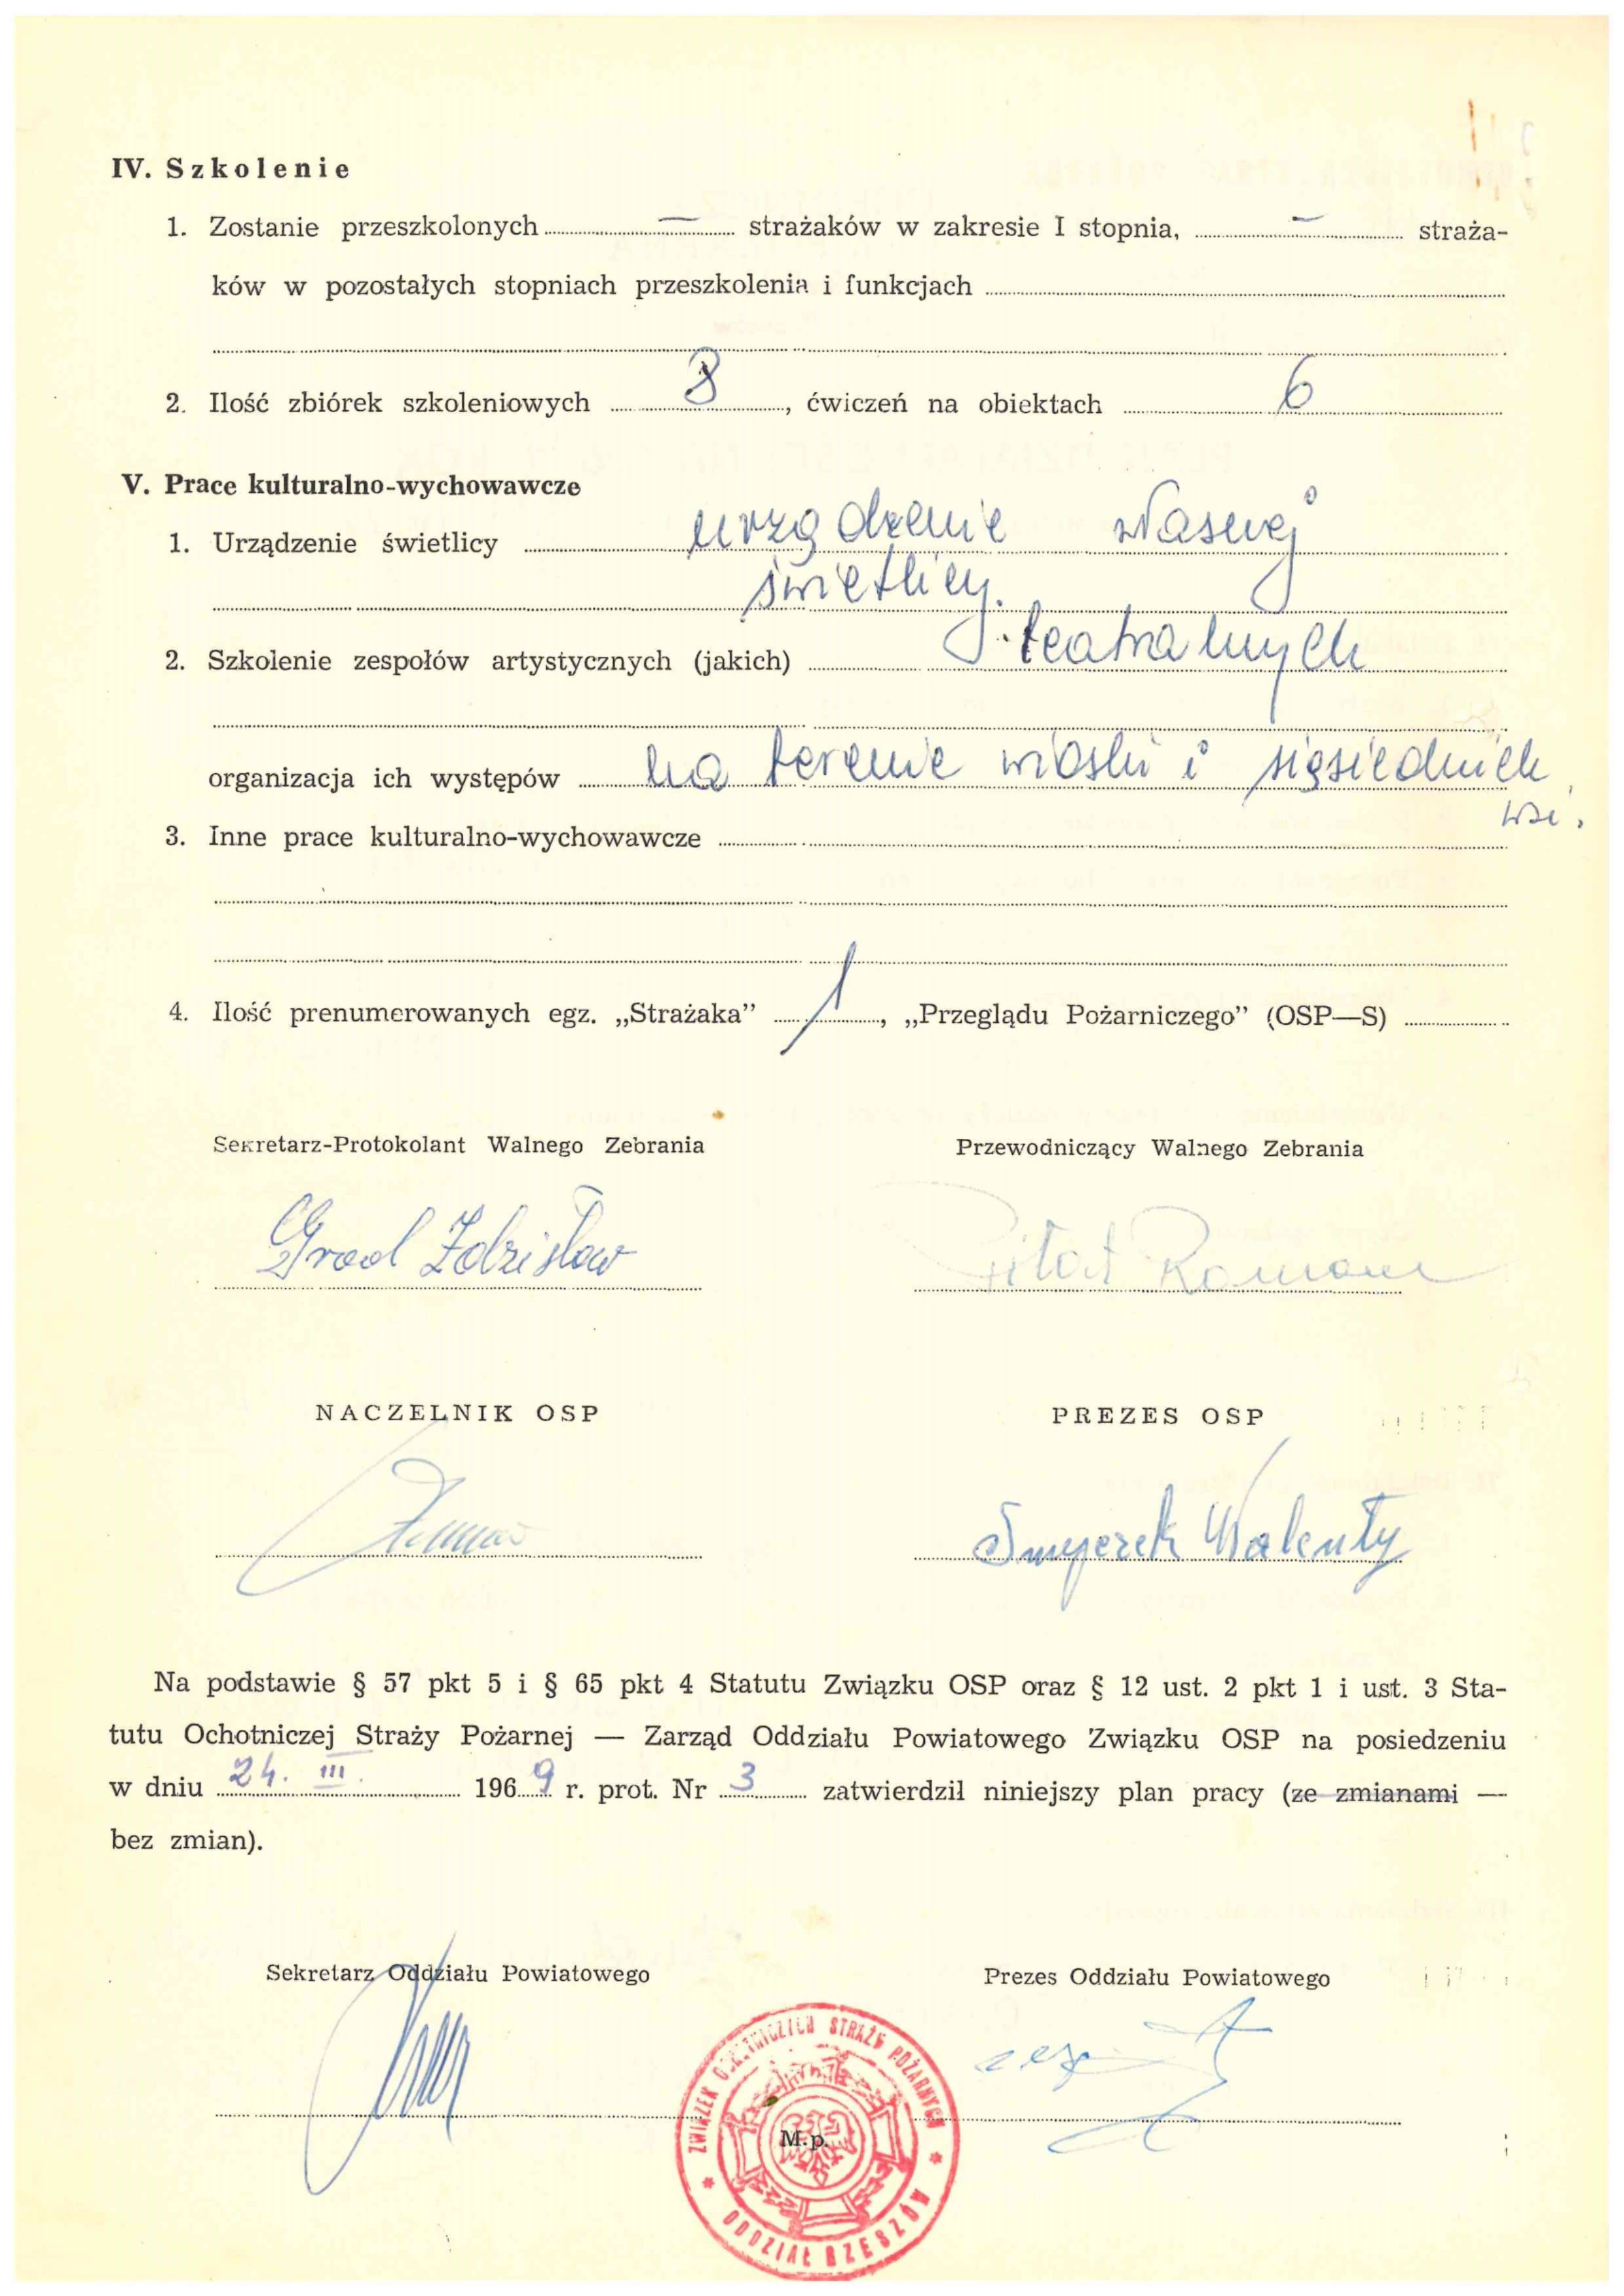 IV. Szkolenie
1. Zostanie przeszkolonych — strażaków w zakresie I stopnia, — straża-
ków w pozostałych stopniach przeszkolenia i funkcjach
2. Ilość zbiórek szkoleniowych 8, ćwiczeń na obiektach 6
V. Prace kulturalno-wychowawcze
1. Urządzenie świetlicy urządzenie własnej
świetlicy.
2. Szkolenie zespołów artystycznych (jakich) teatralnych
organizacja ich występów na terenie wioski i sąsiednich
wsi.
3. Inne prace kulturalno-wychowawcze
4. Ilość prenumerowanych egz. „Strażaka” 1, „Przeglądu Pożarniczego” (OSP—S)
Sekretarz-Protokolant Walnego Zebrania Przewodniczący Walnego Zebrania
Grad Zdzisław Pitat Roman
NACZELNIK OSP PREZES OSP
Walenty
Na podstawie § 57 pkt 5 i § 65 pkt 4 Statutu Związku OSP oraz § 12 ust. 2 pkt 1 i ust. 3 Sta-
tutu Ochotniczej Straży Pożarnej — Zarząd Oddziału Powiatowego Związku OSP na posiedzeniu
w dniu 24. III. 1969 r. prot. Nr 3 zatwierdził niniejszy plan pracy (ze zmianami —
bez zmian).
Sekretarz Oddziału Powiatowego Prezes Oddziału Powiatowego
ZWIĄZEK OCHOTNICZYCH STRAŻY POŻARNYCH
M.p.
ODDZIAŁ RZESZÓW